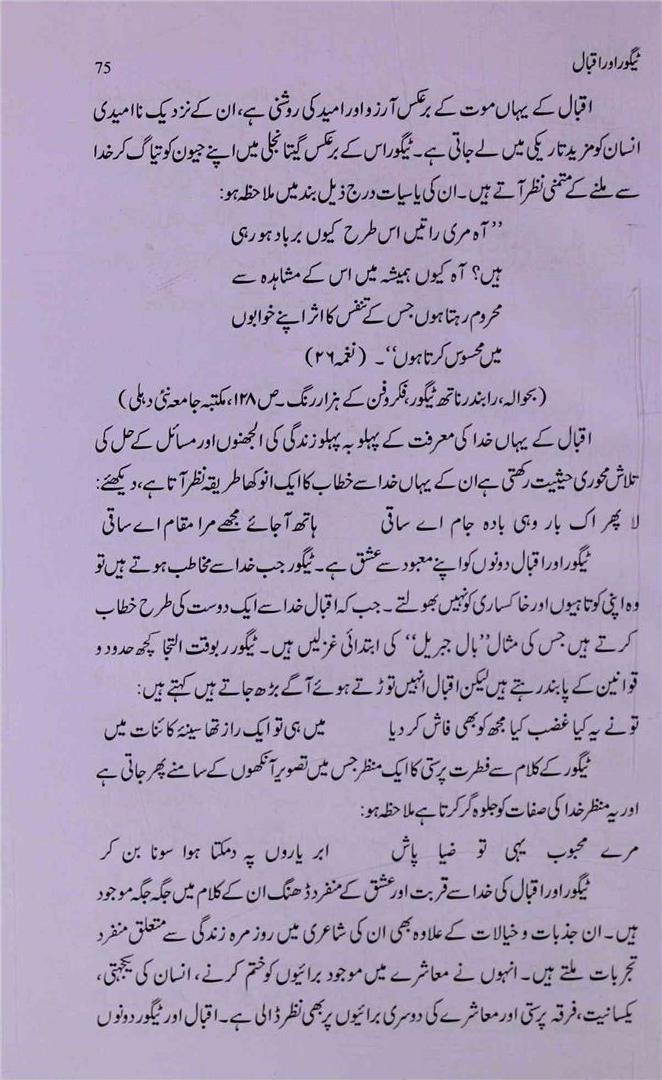 ٹیگور اور اقبال 75
اقبال کے یہاں موت کے برعکس آرزو اور امید کی روشنی ہے، ان کے نزدیک ناامیدی
انسان کو مزید تاریکی میں لے جاتی ہے۔ ٹیگور اس کے برعکس گیتانجلی میں اپنے جیون کو تیاگ کر خدا
سے ملنے کے متمنی نظر آتے ہیں۔ ان کی یاسیات درج ذیل بند میں ملاحظہ ہو:
”آہ مری راتیں اس طرح کیوں برباد ہو رہی
ہیں؟ آہ کیوں ہمیشہ میں اس کے مشاہدہ سے
محروم رہتا ہوں جس کے تنفس کا اثر اپنے خوابوں
میں محسوس کرتا ہوں“۔ (نغمہ ۲۶)
(بحوالہ، رابندر ناتھ ٹیگور، فکر و فن کے ہزار رنگ۔ ص ۱۲۸، مکتبہ جامعہ نئی دہلی)
اقبال کے یہاں خدا کی معرفت کے پہلو بہ پہلو زندگی کی الجھنوں اور مسائل کے حل کی
تلاش محوری حیثیت رکھتی ہے ان کے یہاں خدا سے خطاب کا ایک انوکھا طریقہ نظر آتا ہے، دیکھئے:
لا پھر اک بار وہی بادہ جام اے ساقی ہاتھ آ جائے مجھے مرا مقام اے ساقی
ٹیگور اور اقبال دونوں کو اپنے معبود سے عشق ہے۔ ٹیگور جب خدا سے مخاطب ہوتے ہیں تو
وہ اپنی کوتاہیوں اور خاکساری کو نہیں بھولتے۔ جب کہ اقبال خدا سے ایک دوست کی طرح خطاب
کرتے ہیں جس کی مثال ”بال جبریل“ کی ابتدائی غزلیں ہیں۔ ٹیگور ربوقت التجا کچھ حدود و
قوانین کے پابند رہتے ہیں لیکن اقبال انہیں توڑتے ہوئے آگے بڑھ جاتے ہیں کہتے ہیں:
تو نے یہ کیا غضب کیا مجھ کو بھی فاش کر دیا میں ہی تو ایک راز تھا سینۂ کائنات میں
ٹیگور کے کلام سے فطرت پرستی کا ایک منظر جس میں تصویر آنکھوں کے سامنے پھر جاتی ہے
اور یہ منظر خدا کی صفات کو جلوہ گر کرتا ہے ملاحظہ ہو:
مرے محبوب یہی تو ضیا پاش ابر پاروں پہ دمکتا ہوا سونا بن کر
ٹیگور اور اقبال کی خدا سے قربت اور عشق کے منفرد ڈھنگ ان کے کلام میں جگہ جگہ موجود
ہیں۔ ان جذبات و خیالات کے علاوہ بھی ان کی شاعری میں روز مرہ زندگی سے متعلق منفرد
تجربات ملتے ہیں۔ انہوں نے معاشرے میں موجود برائیوں کو ختم کرنے، انسان کی یکجہتی،
یکسانیت، فرقہ پرستی اور معاشرے کی دوسری برائیوں پر بھی نظر ڈالی ہے۔ اقبال اور ٹیگور دونوں